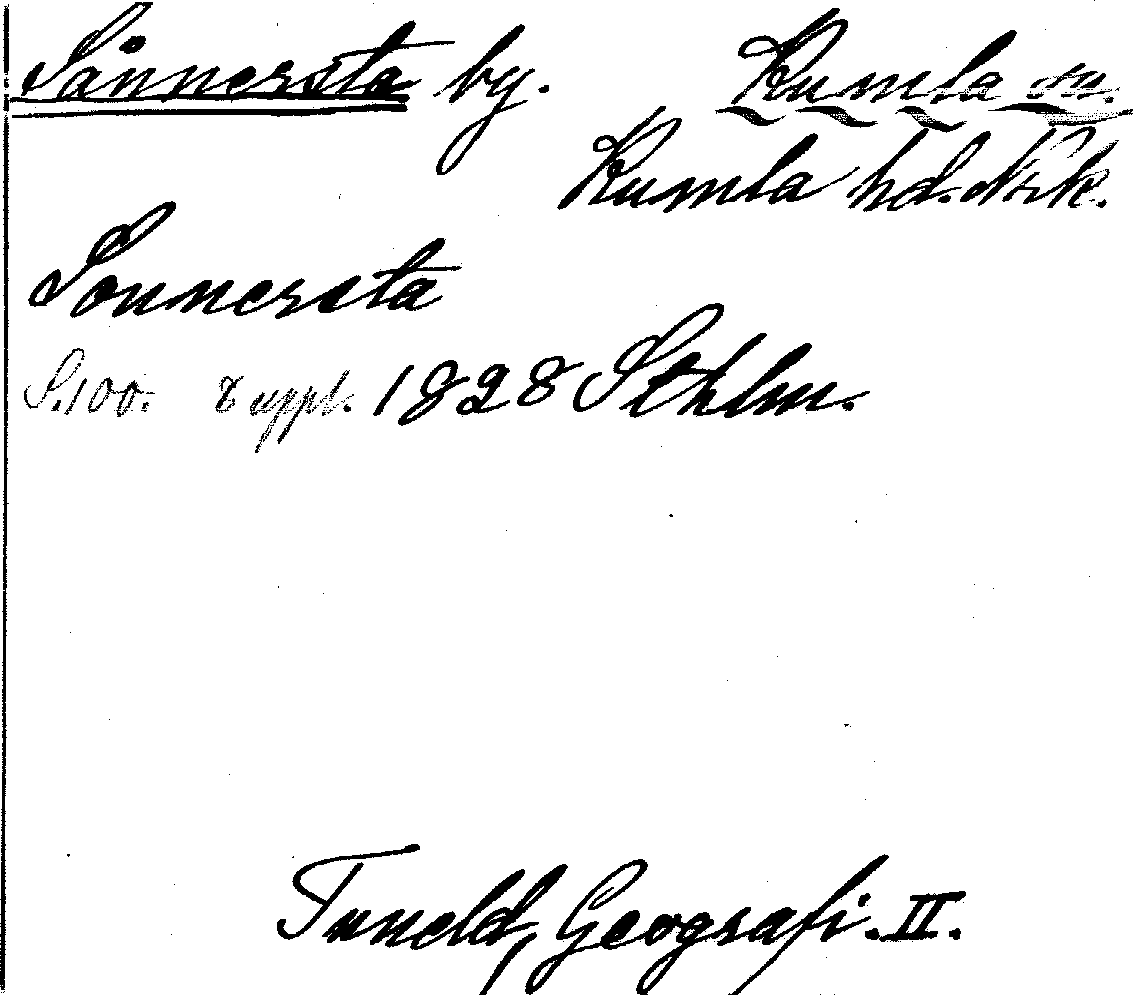 Sånnersta by. Kumla sn.
Kumla hd. Nrk.
Sonnersta
S. 100. 8 uppl. 1828 Sthlm.
Tuneld, Geografi. II.